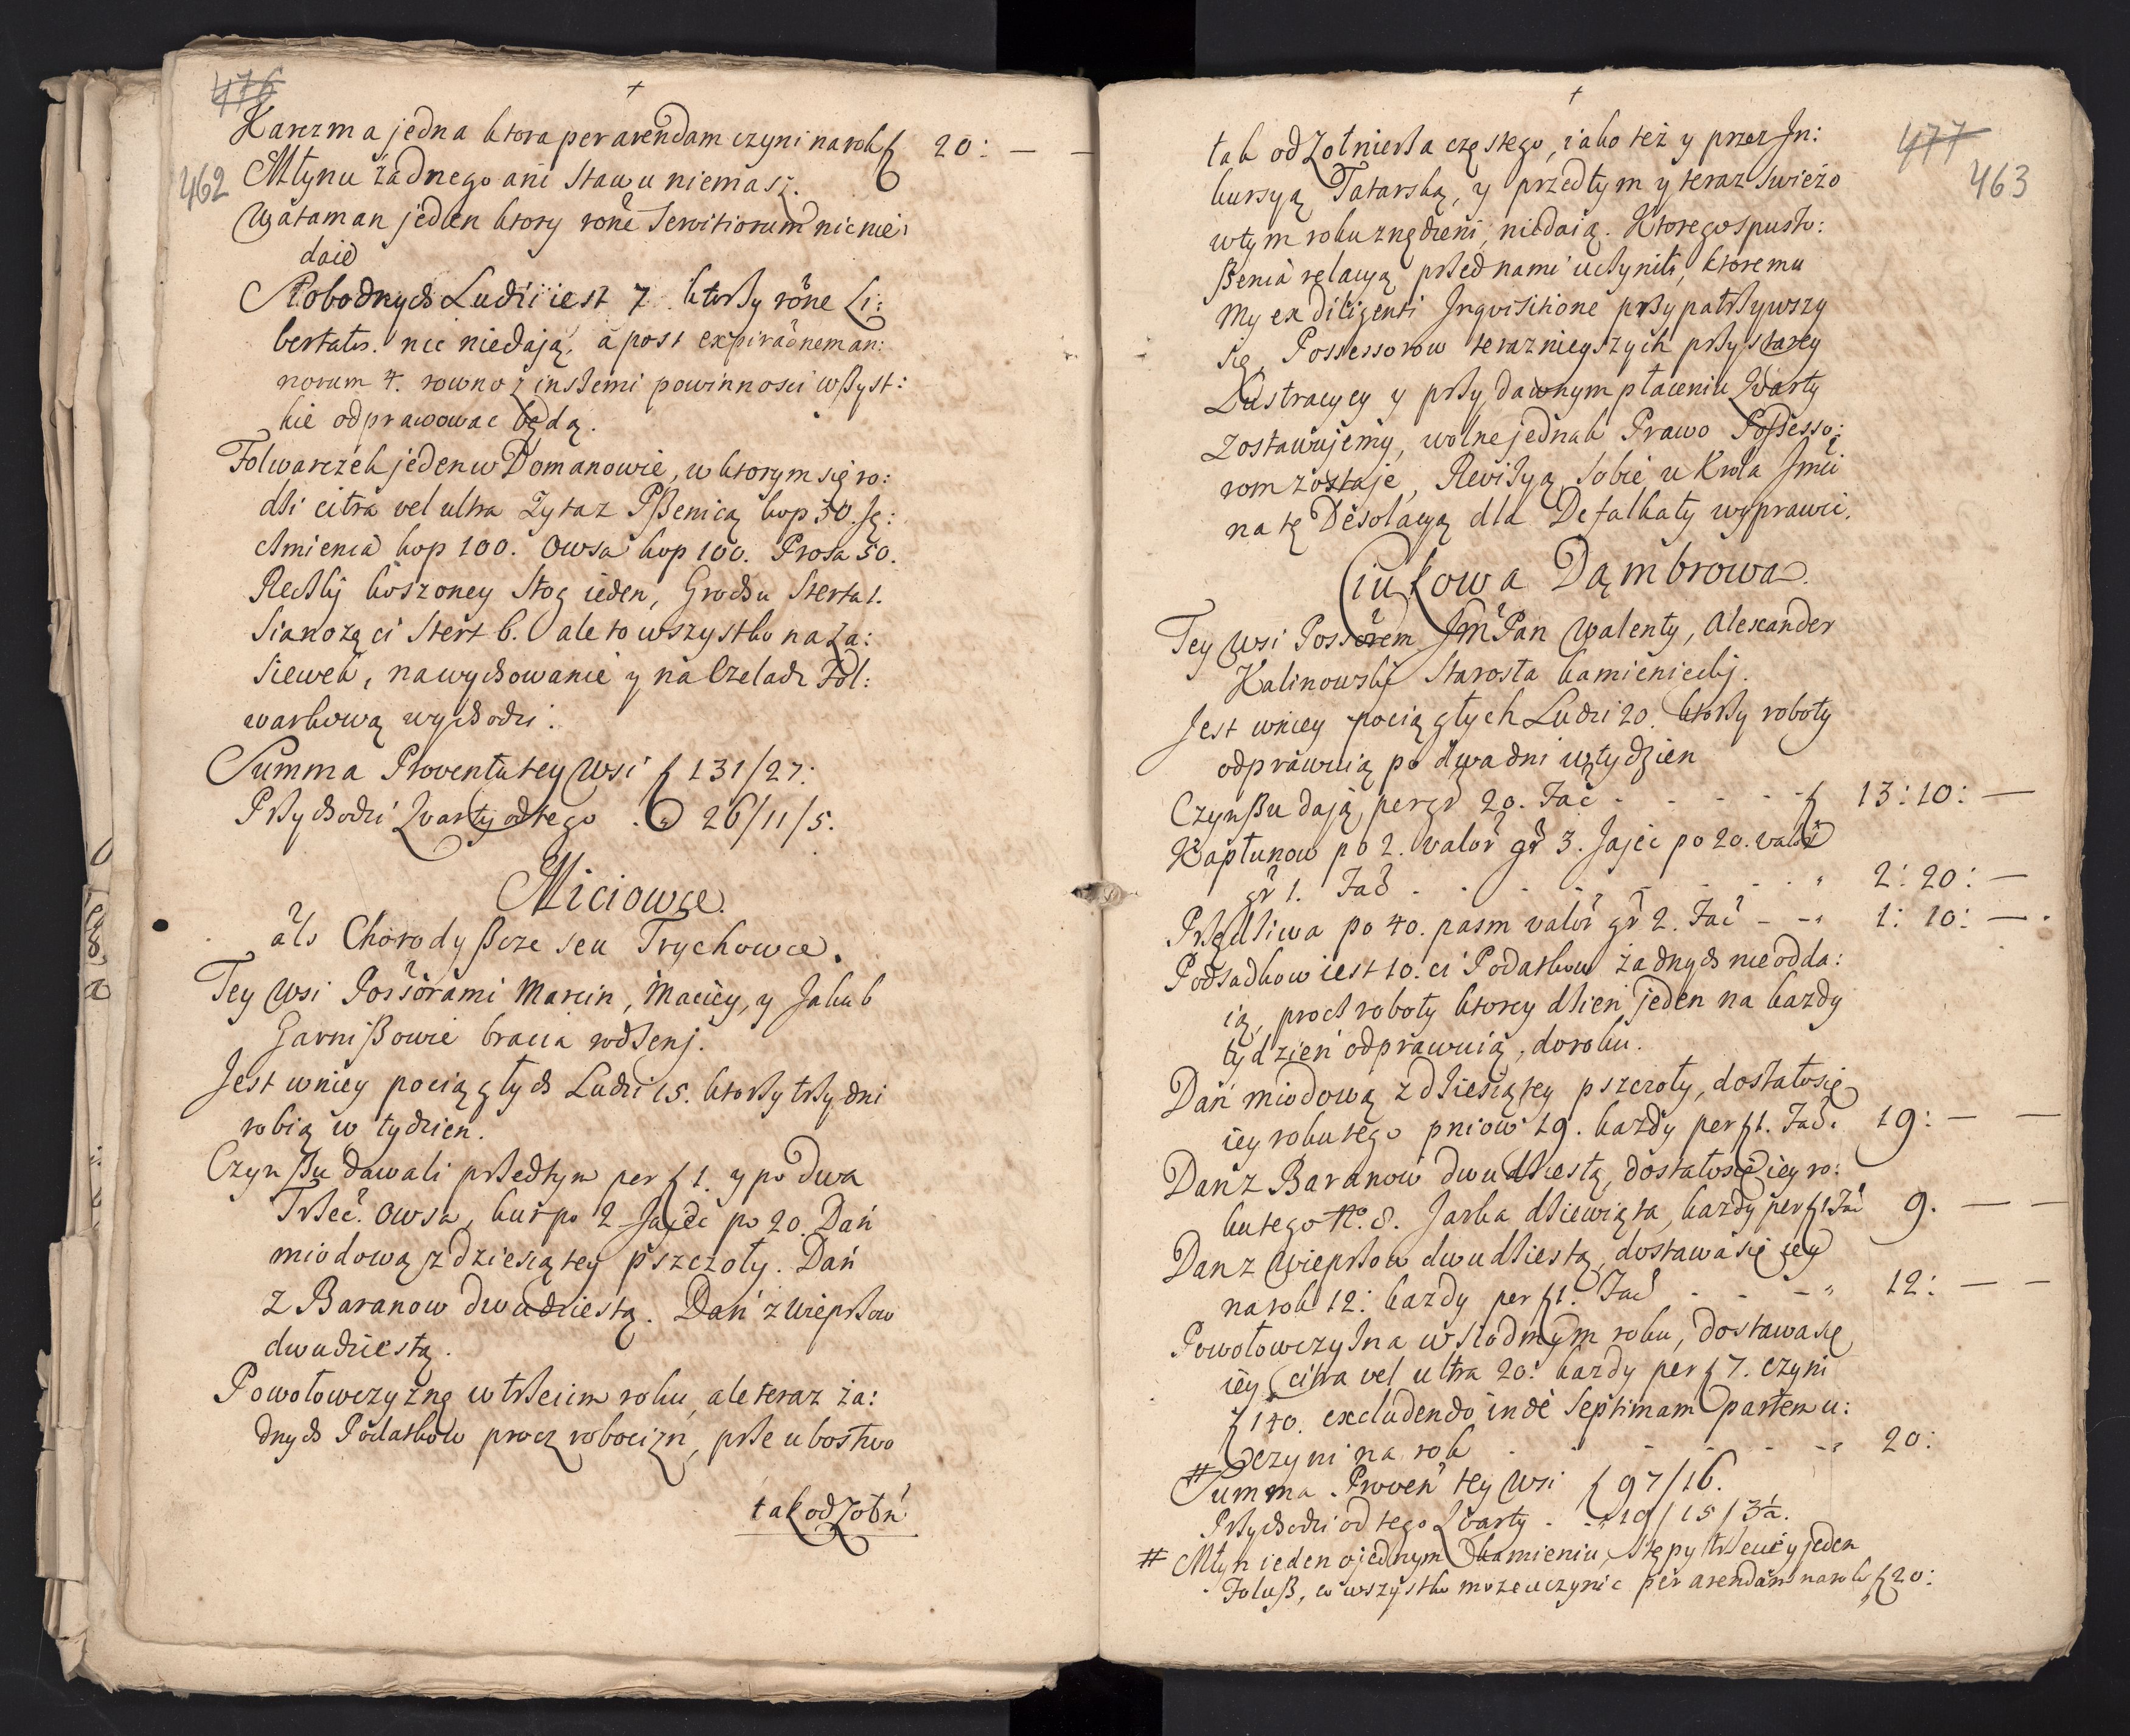 476
+
Karczma jedna ktora per arendam czyni na rok f 20: — —
462
Młynu żadnego ani Stawu niemasz.
Wataman jeden ktory rone Servitiorum nic nie:
daie
Słobodnych Ludzi iest 7. ktorzy rone Li:
bertatis. nic niedają, a post expiraonem an:
norum 4. rowno z inszemi powinnosci wszyst:
kie odprawowac będą.
Folwarczek jeden w Domanowie, w ktorym się ro:
dzi citra vel ultra Zyta z Pszenicą kop 50. Ję:
czmienia kop 100. Owsa kop 100. Prosa 50.
Reczki koszoney Stog ieden, Grochu Sterta 1.
Sianożęci Stert 6. ale to wszystko na Za:
siewek, na wychowanie y na Czeladz Fol:
warkową wychodzi.
Summa Proventu tey Wsi f 131/27:
Przychodzi Kwarty od tego . f 26/11/5.
Miciowce.
als Chorodyszcze seu Trychowce.
Tey Wsi Possorami Marcin, Maciey, y Jakub
Garniszowie bracia rodzeni.
Jest w niey pociągłych Ludzi 15. ktorzy trzy dni
robią w tydzien.
Czynszu dawali przedtym per f 1. y po dwa
Trzec. Owsa, kur po 2. Jajec po 20. Dań
miodową z dziesiątey pszczoły. Dań
z Baranow dwudziestą. Dań z wieprzow
dwudziestą.
Powołowczyznę w trzecim roku, ale teraz ża:
dnych Podatkow procz robocizn, prze ubostwo
tak od Żołn
+
477
463
tak od Żołnierza częstego, iako też y przez In:
kursyą Tatarską, y przedtym y teraz swieżo
w tym roku znędzeni, niedaią. Ktorego spusto:
szenia relacyą przed nami uczynili, ktoremu
my ex diligenti Inquisitione przypatrzywszy
się, Possessorow terazniejszych przy starey
Lustracyey y przy dawnym płaceniu Kwarty
zostawujemy, wolne jednak Prawo Possesso:
rom zostaje, Rewizyą sobie u Krola Jmci
na tę Desolacyą dla Defalkaty wyprawic.
Ciukowa Dąmbrowa.
Tey Wsi Possorem Jm Pan Walenty, Alexander
Kalinowski Starosta kamieniecki.
Jest w niey pociągłych Ludzi 20. ktorzy roboty
odprawuią po dwa dni w tydzien
Czynszu dają per gr 20. Fac - - - - f 13: 10: —
Kapłunow po 2. valor gr 3. Jajec po 20. valor
gr 1. Fac - - - - - - 2: 20: —
Przędziwa po 40. pasm valor gr 2. Fac - - 1: 10: —
Podsadkow iest 10. ci Podatkow żadnych nie odda:
ią, procz roboty ktorey dzien jeden na kazdy
tydzień odprawuią, do roku.
Dań miodową z dziesiątey pszczoły, dostało się
iey roku tego pniow 19. kazdy per f 1. Fac. 19: — —
Dan z Baranow dwudziestą, dostało się iey ro:
ku tego No. 8. Jarka dziewiąta, kazdy per f 1. Fac 9. — —
Dan z Wieprzow dwudziestą, dostawa się iey
na rok 12: kazdy per f 1. Fac - - - 12: — —
Powołowczyzna w siodmym roku, dostawa się
iey citra vel ultra 20. kazdy per f 7. czyni
f 140. excludendo inde Septimam partem u:
czyni na rok - - - - - - 20:
# Summa Proven tey Wsi f 97/16.
Przychodzi od tego Kwarty - - 19/15/3½.
# Młyn ieden o jednym kamieniu, Stępy trzecie y jeden
Folusz, co wszystko może uczynic per arendam na rok f 20: